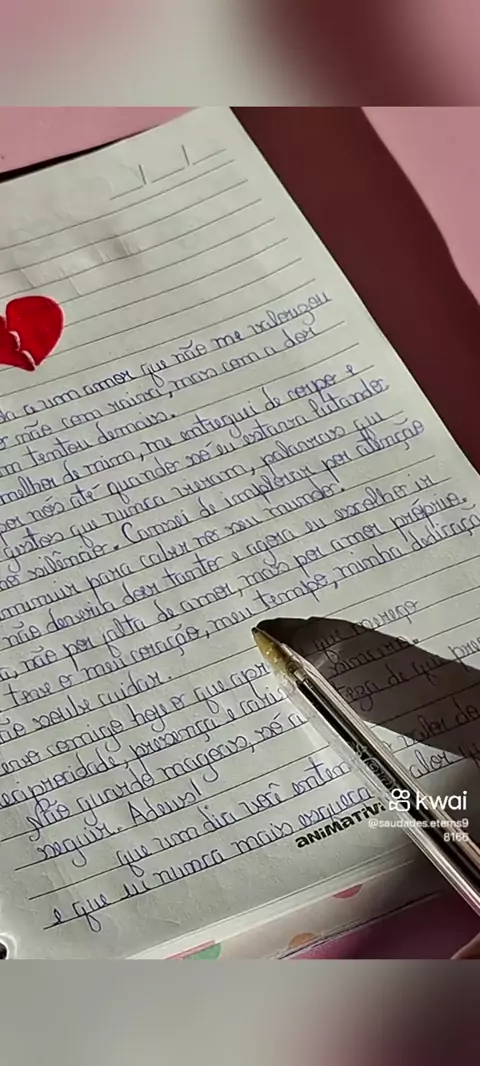 a um amor que não me valorizou
não com raiva, mas com a dor
tentou demais.
melhor de mim, me entreguei de corpo e
por nós até quando só eu estava lutando
gestos que nunca vieram, palavras que
no silêncio. Cansei de implorar por atenção
para caber no seu mundo.
não deveria doer tanto e agora eu escolho ir
não por falta de amor, mas por amor próprio.
teve o meu coração, meu tempo, minha dedicação
não soube cuidar.
comigo hoje o que que mereço
reciprocidade, presença e
Não guardo mágoas, só a de que
seguir. Adeus!
que um dia você valor do
e que eu nunca mais esqueça
ANIMATIV
kwai
@saudades.eterns9
8166